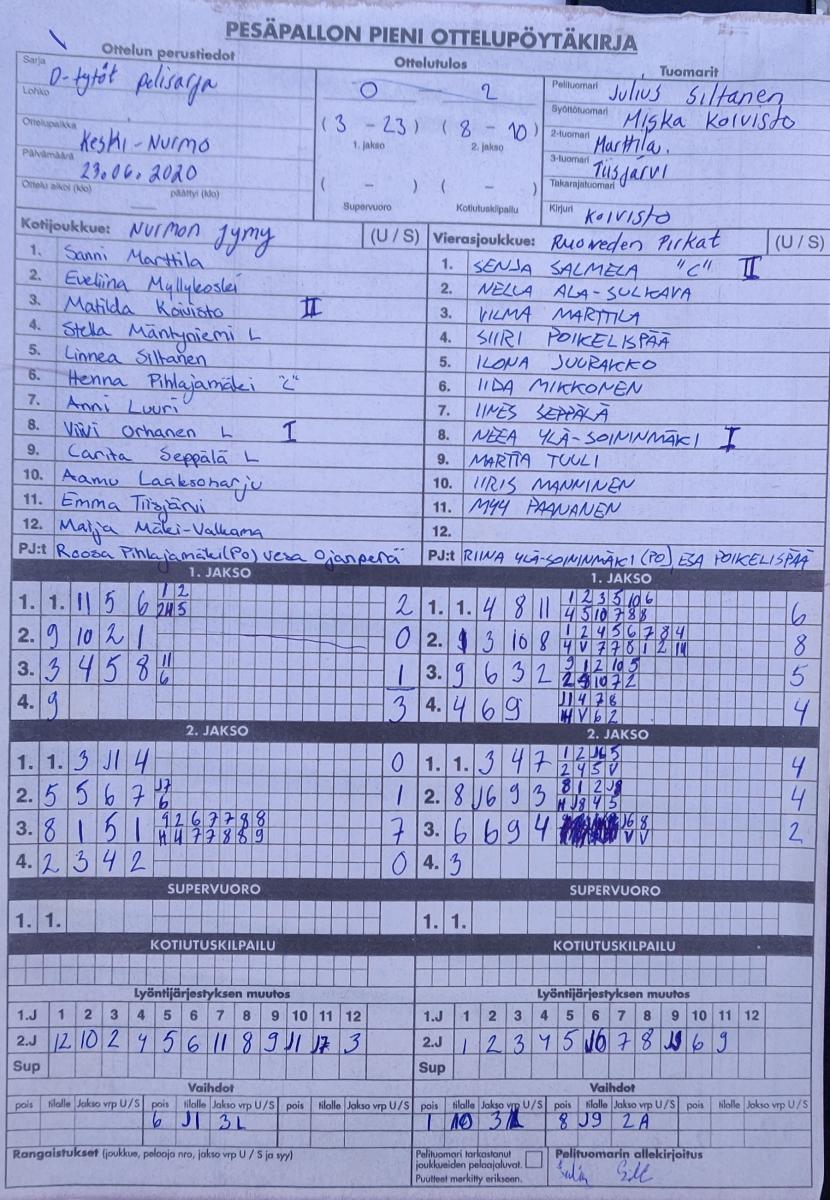 PESÄPALLON PIENI OTTELUPÖYTÄKIRJA
Ottelun perustiedot
Sarja D-tytöt pelisarja
Lohko
Ottelupaikka Keski-Nurmo
Päivämäärä 23.06.2020
Ottelu alkoi (klo) päättyi (klo)
Ottelutulos
0 - 2
(3 - 23) (8 - 10)
1. jakso 2. jakso
( - ) ( - )
Supervuoro Kotiutuskilpailu
Tuomarit
Pelituomari Julius Siltanen
Syöttötuomari Miska Koivisto
2-tuomari Marttila.
3-tuomari Tiisjärvi
Takarajatuomari
Kirjuri Koivisto
Kotijoukkue: Nurmon Jymy (U / S)
1. Sanni Marttila
2. Eveliina Myllykoski
3. Matilda Koivisto II
4. Stella Mäntyniemi L
5. Linnea Siltanen
6. Henna Pihlajamäki "C"
7. Anni Luuri
8. Viivi Orhanen L I
9. Carita Seppälä L
10. Aamu Laaksoharju
11. Emma Tiisjärvi
12. Maija Mäki-Valkama
PJ:t Roosa Pihlajamäki (PO) Vesa Ojanperä
Vierasjoukkue: Ruoveden Pirkat (U / S)
1. SENJA SALMELA "C" II
2. NELLA ALA-SULKAVA
3. VILMA MARTTILA
4. SIIRI POIKELISPÄÄ
5. ILONA JUURAKKO
6. IIDA MIKKONEN
7. IINES SEPPÄLÄ
8. NEEA YLÄ-SOININMÄKI I
9. MARTTA TUULI
10. IIRIS MANNINEN
11. MYY PAANANEN
12.
PJ:t RIINA YLÄ-SOININMÄKI (PO), ESA POIKELISPÄÄ
1. JAKSO
1. 1. 11 5 6 1 2 2
2. 9 10 2 1 0
3. 3 4 5 8 11 6 1
4. 9 3
1. JAKSO
1. 1. 4 8 11 1 2 3 5 10 6 6
4 5 10 7 8 8
2. 3 10 8 1 2 4 5 6 7 8 4 8
4 V 7 7 8 1 2 11
3. 9 6 3 2 9 1 2 10 5 5
4. 4 6 9 J1 4 7 8 4
H V 6 2
2. JAKSO
1. 1. 3 J1 4 0
2. 5 5 6 7 J7 6 1
3. 8 1 5 1 9 2 6 7 7 8 8 7
H 4 7 7 8 8 9
4. 2 3 4 2 0
2. JAKSO
1. 1. 3 4 7 1 2 J6 5 4
2 4 5 V
2. 8 J6 9 3 8 1 2 J9 4
H J8 4 5
3. 6 6 9 4 J6 8 2
V V
4. 3
SUPERVUORO
1. 1.
SUPERVUORO
1. 1.
KOTIUTUSKILPAILU
KOTIUTUSKILPAILU
Lyöntijärjestyksen muutos
1.J 1 2 3 4 5 6 7 8 9 10 11 12
2.J 12 10 2 4 5 6 11 8 9 J1 J7 3
Sup
Lyöntijärjestyksen muutos
1.J 1 2 3 4 5 6 7 8 9 10 11 12
2.J 1 2 3 4 5 J6 7 8 J9 6 9
Sup
Vaihdot
pois tilalle Jakso vrp U/S pois tilalle Jakso vrp U/S pois tilalle Jakso vrp U/S
6 J1 3L
Vaihdot
pois tilalle Jakso vrp U/S pois tilalle Jakso vrp U/S
1 10 8 J9 2A
Rangaistukset (joukkue, pelaaja nro, jakso vrp U / S ja syy)
Pelituomari tarkastanut
joukkueiden pelaajaluvat.
Puutteet merkitty erikseen.
Pelituomarin allekirjoitus